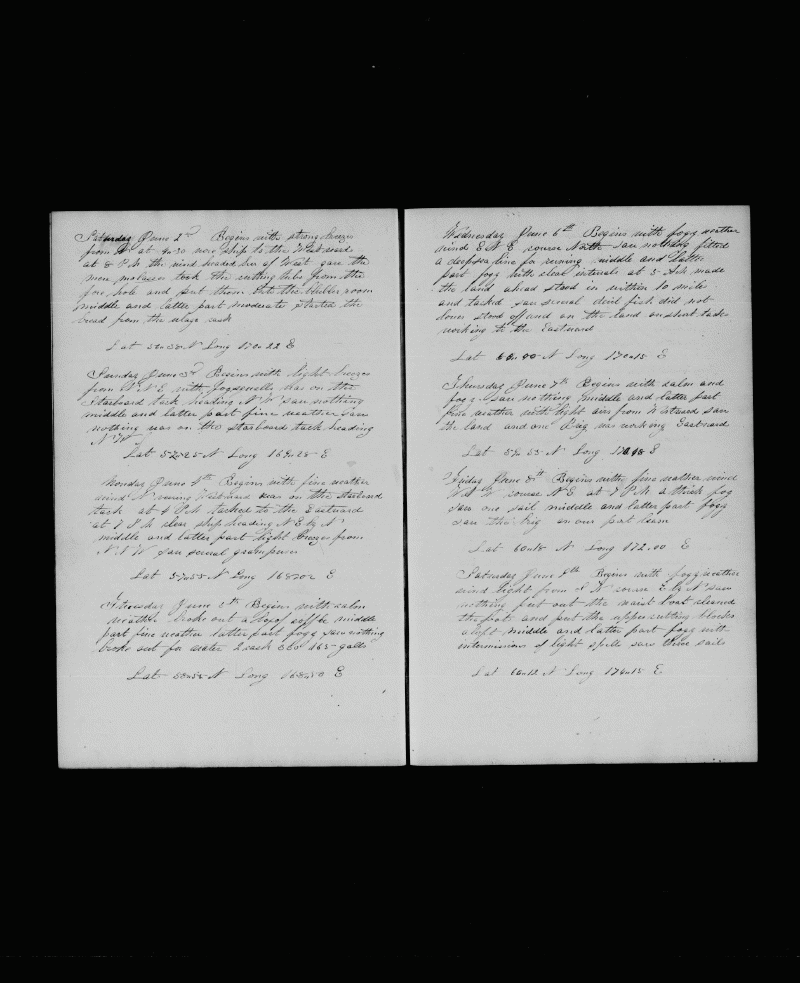 Saturday June 2nd Begins with strong breezes
from N at 9.30 wore ship to the Westward
at 8 P M the wind headed her of West gave the
men molasses took the cutting tubs from the
fore hole and put them into the blubber room
middle and latter part moderate started the
bread from the cask
Lat Long 170 22 E
Sunday June 3rd Begins with light breezes
from N N E with fog was on the
Starboard tack heading N W saw nothing
middle and latter part fine weather saw
nothing was on the starboard tack heading
N W
Lat 57 25 N Long 169 28 E
Monday June 4th Begins with fine weather
wind N Westward was on the starboard
tack at 4 P M tacked to the Eastward
at 7 P M ship heading N E by N
middle and latter part light breezes from
N N W saw several
Lat 57 55 N Long 168 02 E
Tuesday June 5th Begins with calm
weather broke out coffee middle
part fine weather latter part fogg saw nothing
broke out for water 2 cask 165 galls
Lat N Long E
Wednesday June 6th Begins with fogg weather
wind E N E course North saw nothing fitted
a deepsea line for middle and latter
part fogg with clear intervals at 5 A M made
the land ahead stood in within 10 miles
and tacked saw several devil fish did not
lower stood off and on the land on short tacks
working to the Eastward
Lat N Long 170 15 E
Thursday June 7th Begins with calm and
fogg saw nothing middle and latter part
fine weather with light airs from saw
the land and one Brig was working Eastward
Lat 59 53 N Long E
Friday June 8th Begins with fine weather wind
course N E at 7 P M thick fog
saw one sail middle and latter part fogg
saw the brig on our port beam
Lat 60 18 N Long 172.00 E
Saturday June 9th Begins with fogg weather
wind light from course E by N saw
nothing put out the waist boat cleaned
the port and put the upper cutting blocks
aloft middle and latter part fogg with
intermissions of light spells saw three sails
Lat 60 12 N Long 174 15 E